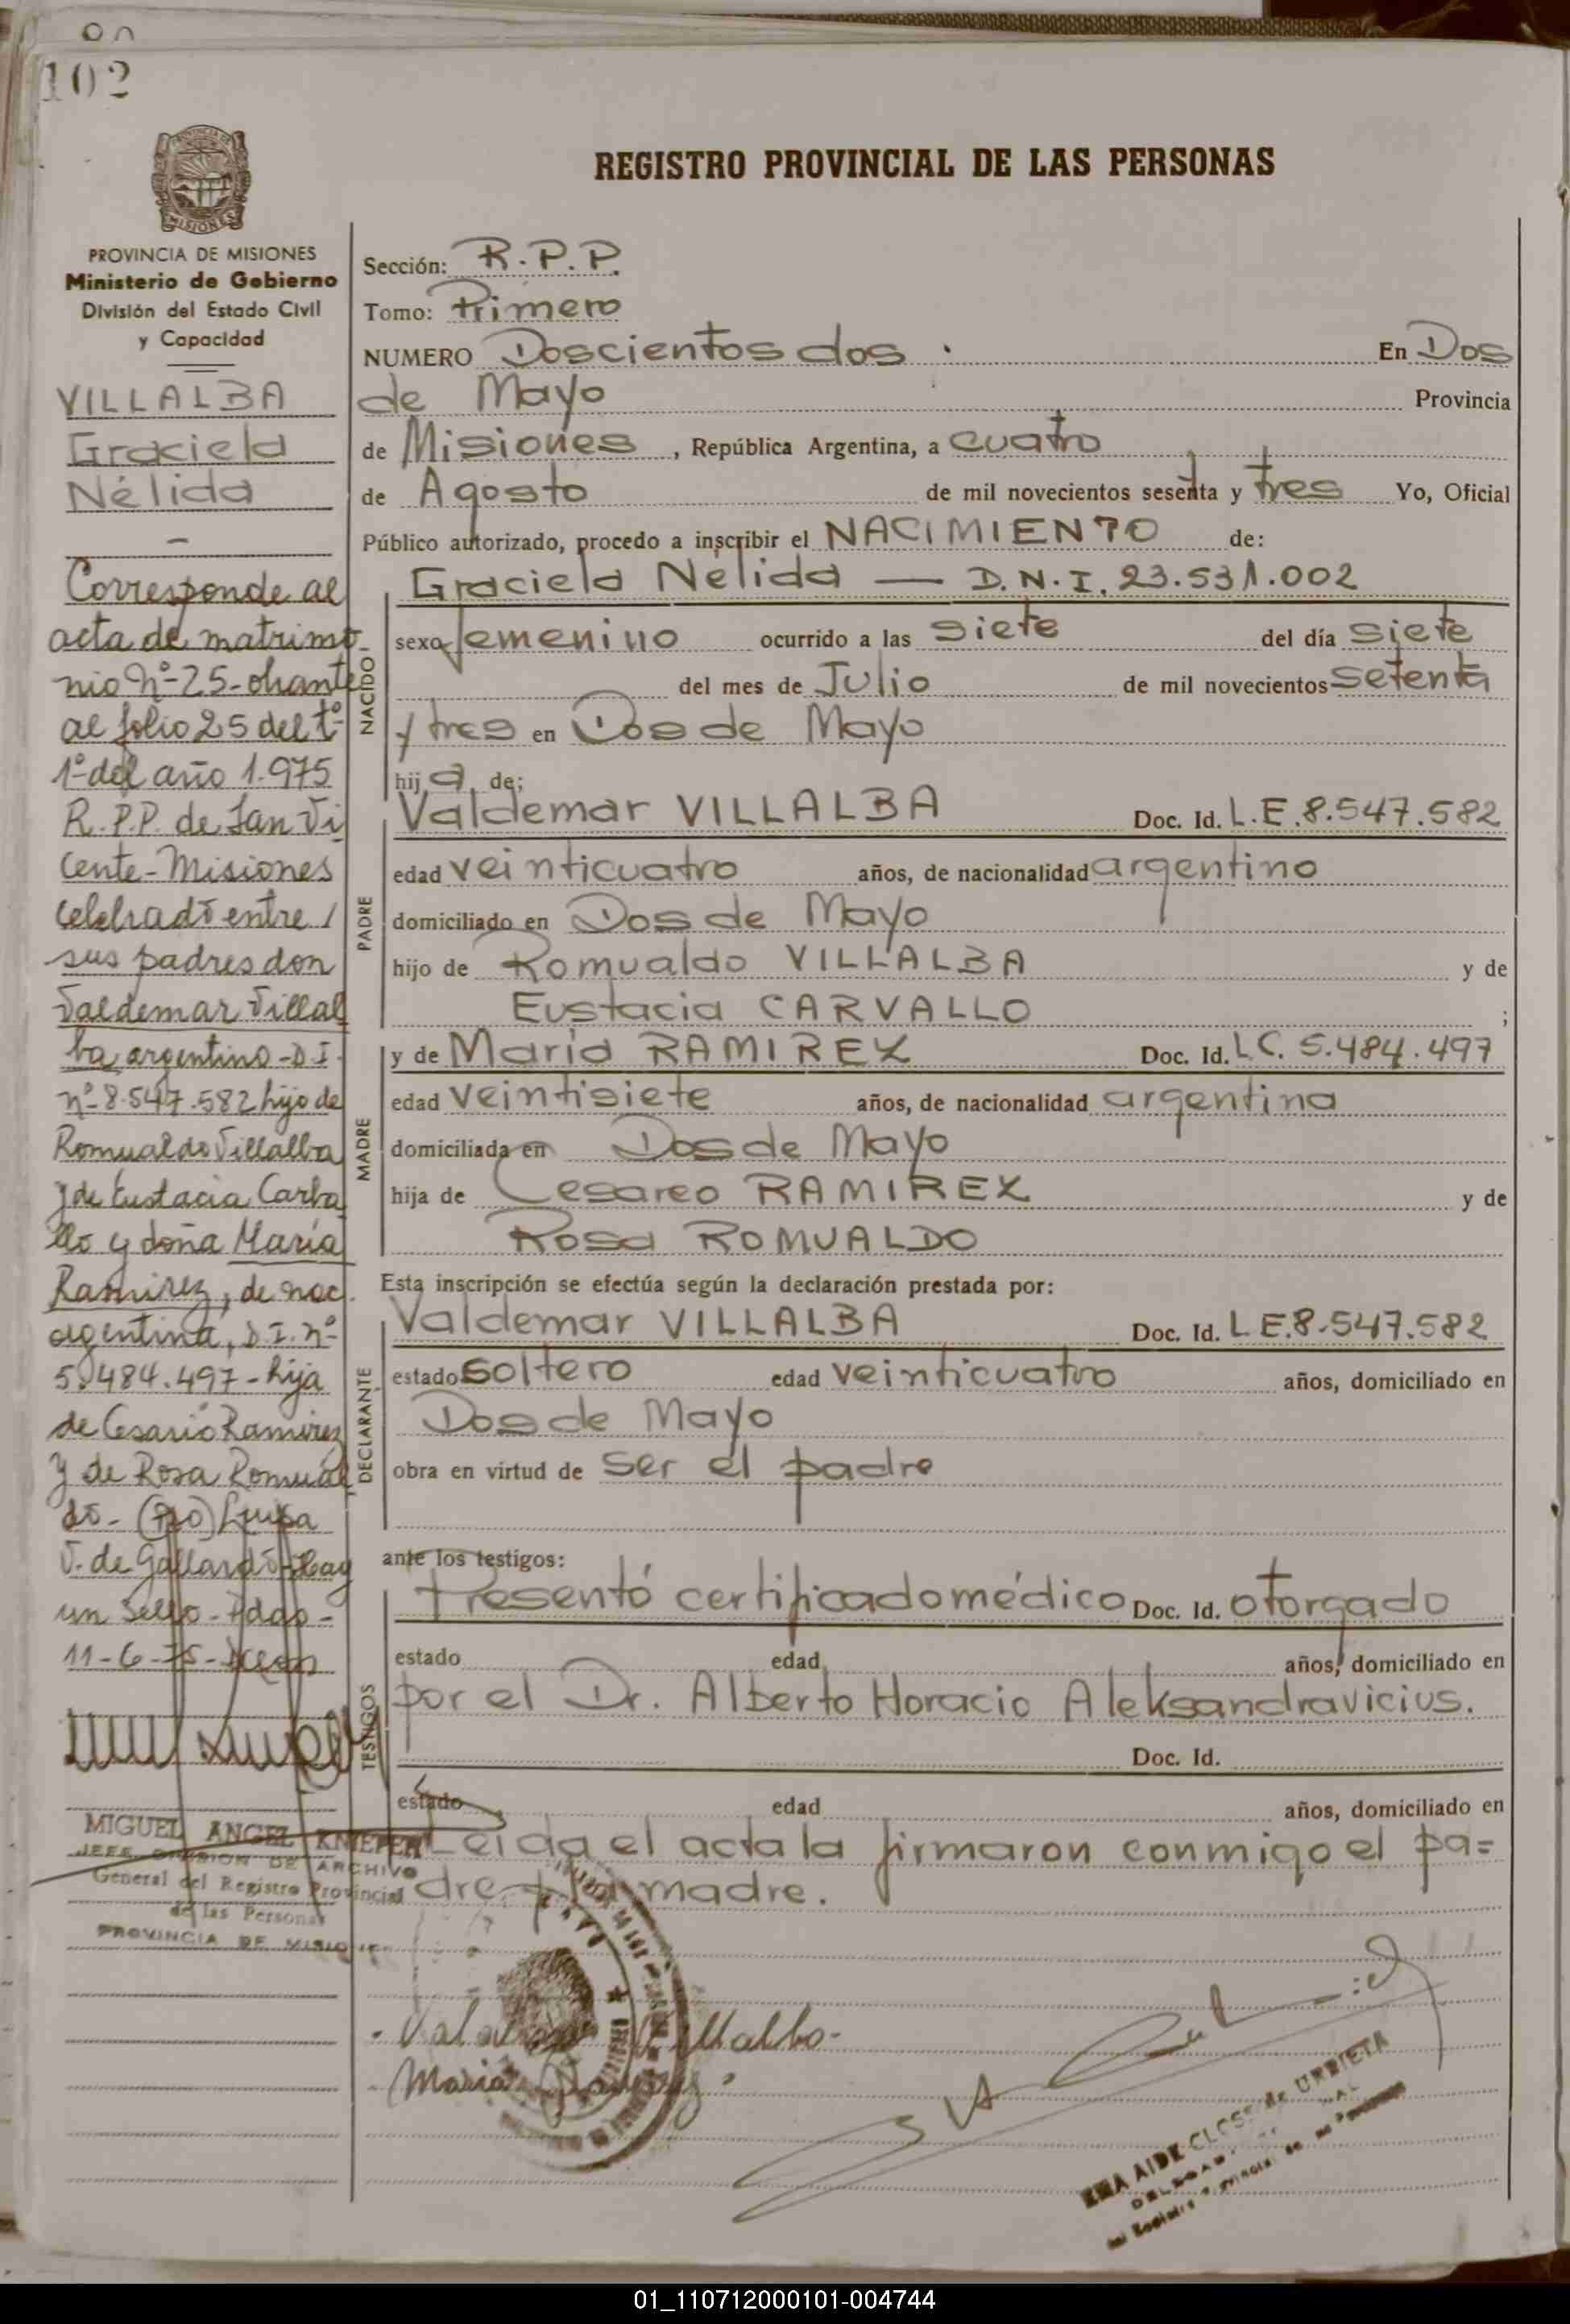 102
REGISTRO PROVINCIAL DE LAS PERSONAS
MISIONES
PROVINCIA DE MISIONES
Ministerio de Gobierno
División del Estado Civil
y Capacidad
VILLALBA
Graciela
Nélida
Corresponde al
acta de matrimo
nio nº 25 - obrante
al folio 25 del tº
1º del año 1.975
R.P.P. de San Vi
cente - Misiones
celebrado entre /
sus padres don
Valdemar Villal
ba argentino - D.I.
nº 8.547.582 hijo de
Romualdo Villalba
y de Eustacia Carba
llo y doña María
Ramirez, de nac.
argentina, D.I. nº
5.484.497 - hija
de Cesario Ramirez
y de Rosa Romual
do - (Fdo) Luisa
V. de Gallardo - Hay
un Sello - Pdas -
11-6-75-
MIGUEL ANGEL KNIEPER
JEFE DIVISION DE ARCHIVO
General del Registro Provincial
de las Personas
PROVINCIA DE MISIONES
Sección: R.P.P.
Tomo: Primero
NUMERO Doscientos dos . En Dos
de Mayo Provincia
de Misiones , República Argentina, a cuatro
de Agosto de mil novecientos sesenta y tres Yo, Oficial
Público autorizado, procedo a inscribir el NACIMIENTO de:
Graciela Nélida — D.N.I. 23.531.002
NACIDO
sexo femenino ocurrido a las siete del día siete
del mes de Julio de mil novecientos setenta
y tres en Dos de Mayo
hij a de:
Valdemar VILLALBA Doc. Id. L.E. 8.547.582
PADRE
edad veinticuatro años, de nacionalidad argentino
domiciliado en Dos de Mayo
hijo de Romualdo VILLALBA y de
Eustacia CARVALLO ;
y de María RAMIREZ Doc. Id. L.C. 5.484.497
MADRE
edad veintisiete años, de nacionalidad argentina
domiciliada en Dos de Mayo
hija de Cesareo RAMIREZ y de
Rosa ROMUALDO
Esta inscripción se efectúa según la declaración prestada por:
Valdemar VILLALBA Doc. Id. L.E. 8.547.582
DECLARANTE
estado soltero edad veinticuatro años, domiciliado en
Dos de Mayo
obra en virtud de ser el padre
ante los testigos:
Presentó certificado médico Doc. Id. otorgado
TESTIGOS
estado edad años, domiciliado en
por el Dr. Alberto Horacio Aleksandravicius.
Doc. Id.
estado edad años, domiciliado en
Leida el acta la firmaron conmigo el pa=
dre y la madre.
Valdemar Villalba
Maria Ramirez
AIDE CLOSS de URRIETA
01_110712000101-004744